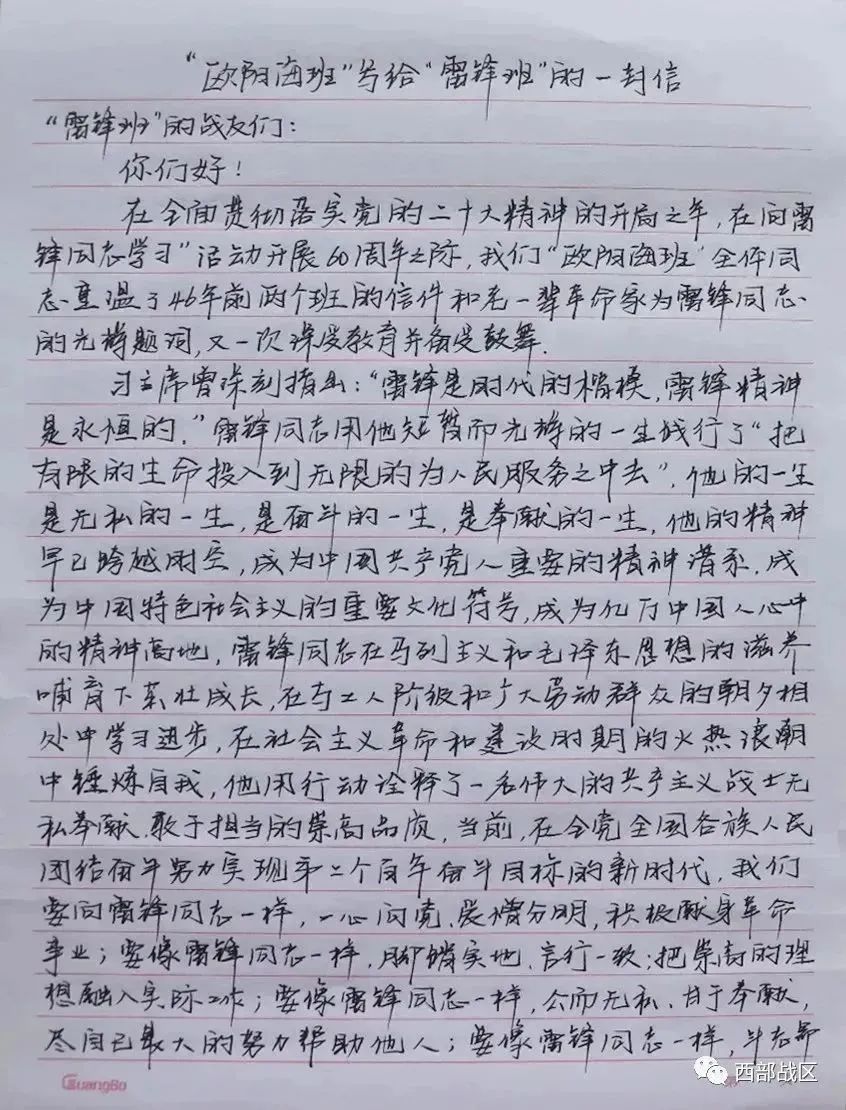 “欧阳海班”写给“雷锋班”的一封信
“雷锋班”的战友们：
你们好！
在全面贯彻落实党的二十大精神的开局之年，在向雷
锋同志学习”活动开展60周年之际，我们“欧阳海班”全体同
志重温了46年前两个班的信件和老一辈革命家为雷锋同志
的光辉题词，又一次深受教育并备受鼓舞.
习主席曾深刻指出：“雷锋是时代的楷模，雷锋精神
是永恒的.”雷锋同志用他短暂而光辉的一生践行了“把
有限的生命投入到无限的为人民服务之中去”，他的一生
是无私的一生，是奋斗的一生，是奉献的一生，他的精神
早已跨越时空，成为中国共产党人重要的精神谱系，成
为中国特色社会主义的重要文化符号，成为亿万中国人心中
的精神高地，雷锋同志在马列主义和毛泽东思想的滋养
哺育下茁壮成长，在与工人阶级和广大劳动群众的朝夕相
处中学习进步，在社会主义革命和建设时期的火热浪潮
中锤炼自我，他用行动诠释了一名伟大的共产主义战士无
私奉献、敢于担当的崇高品质，当前，在全党全国各族人民
团结奋斗努力实现第二个百年奋斗目标的新时代，我们
要向雷锋同志一样，一心向党、爱憎分明，积极献身革命
事业；要像雷锋同志一样，脚踏实地、言行一致；把崇高的理
想融入实际工作；要像雷锋同志一样，公而无私、甘于奉献，
尽自己最大的努力帮助他人；要像雷锋同志一样，斗志昂
GuangBo
西部战区